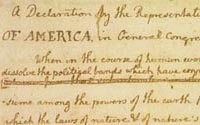 A Declaration by the Representat
OF AMERICA, in General Congre
When in the course of human even
dissolve the political bands which have con
-sume among the powers of the earth
which the laws of nature & of nature's